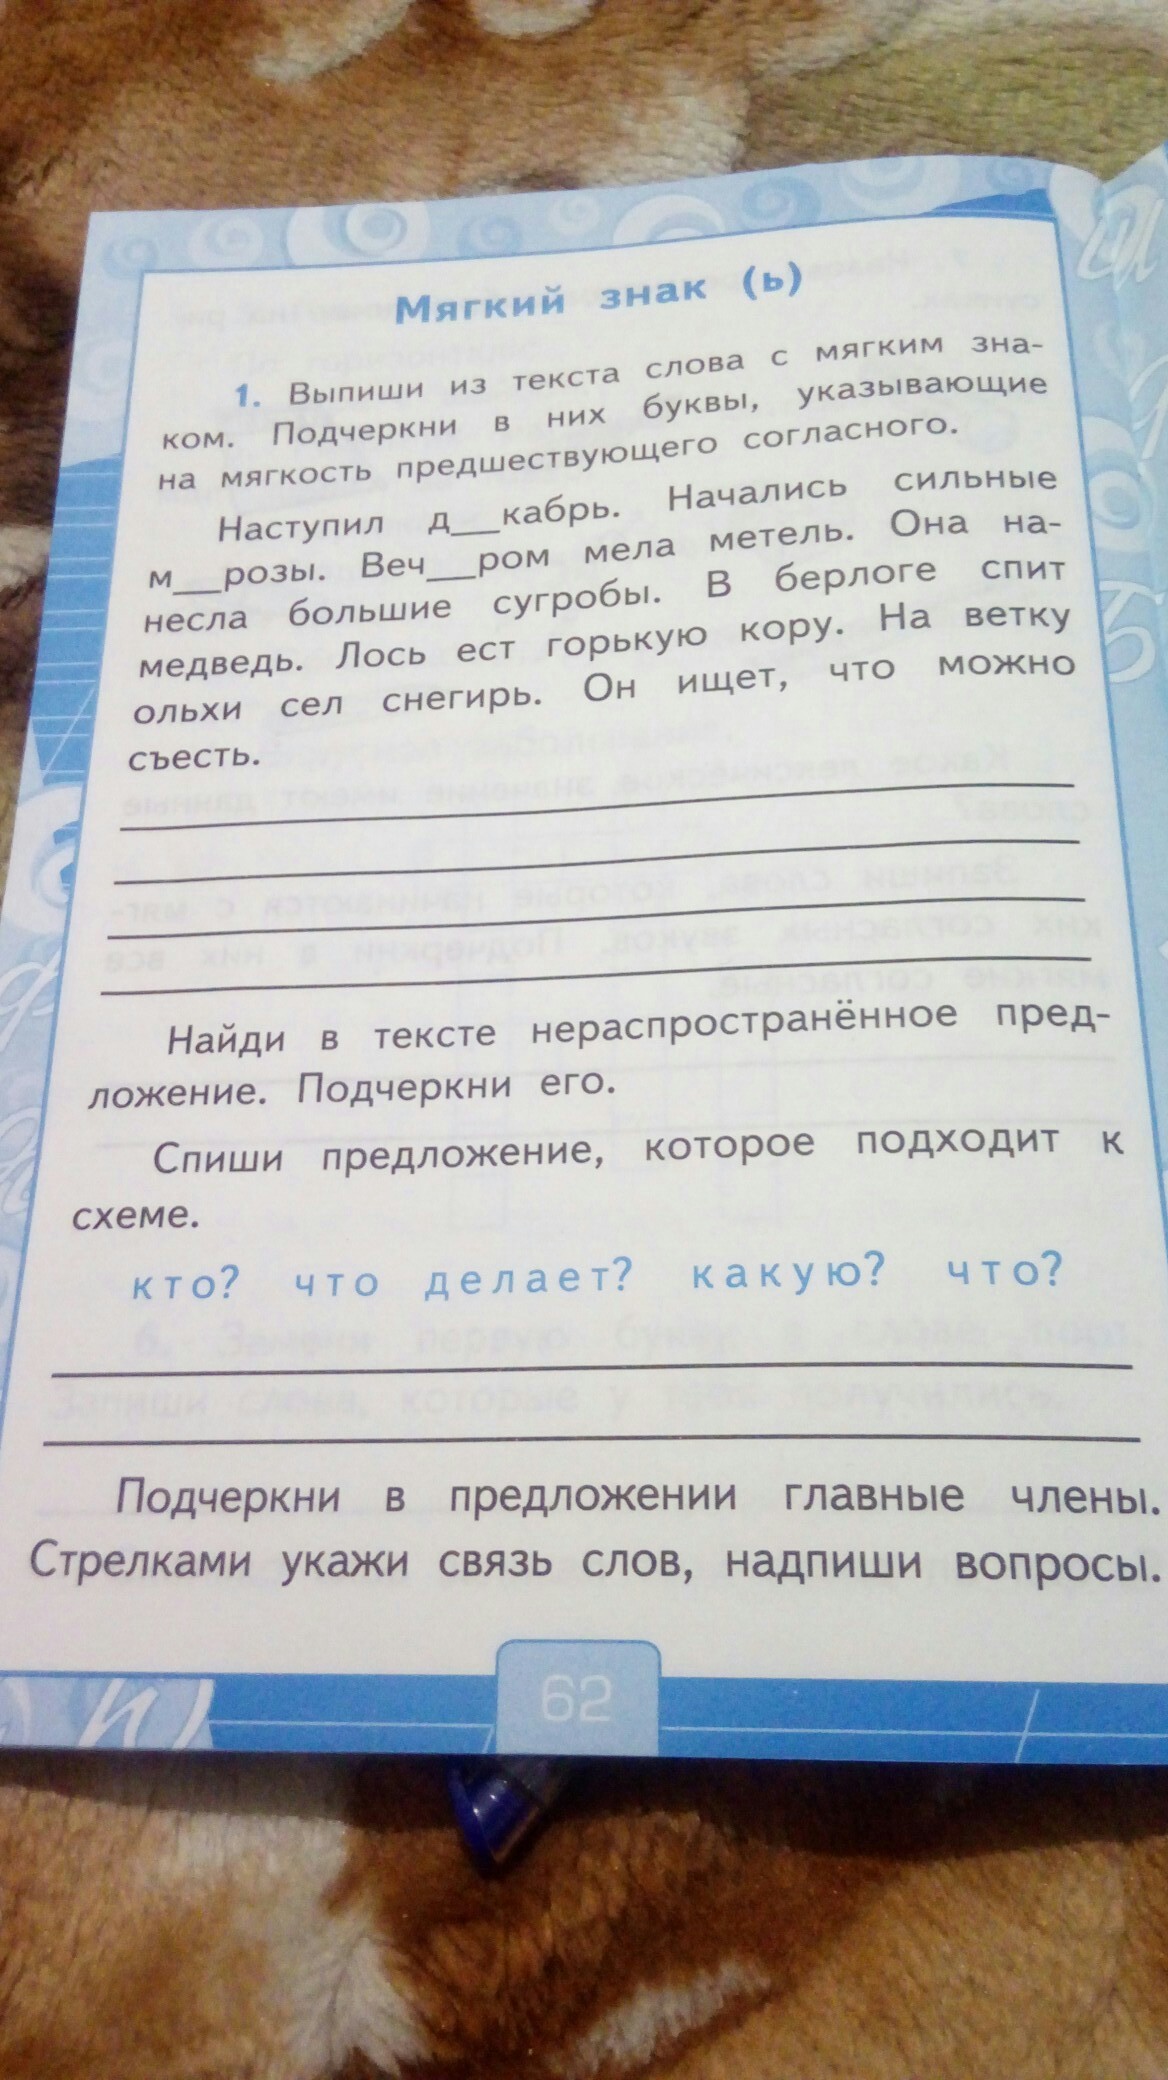 Мягкий знак (ь)
1. Выпиши из текста слова с мягким зна-
ком. Подчеркни в них буквы, указывающие
на мягкость предшествующего согласного.
Наступил д__кабрь. Начались сильные
м__розы. Веч__ром мела метель. Она на-
несла большие сугробы. В берлоге спит
медведь. Лось ест горькую кору. На ветку
ольхи сел снегирь. Он ищет, что можно
съесть.
Найди в тексте нераспространённое пред-
ложение. Подчеркни его.
Спиши предложение, которое подходит к
схеме.
кто? что делает? какую? что?
Подчеркни в предложении главные члены.
Стрелками укажи связь слов, надпиши вопросы.
62